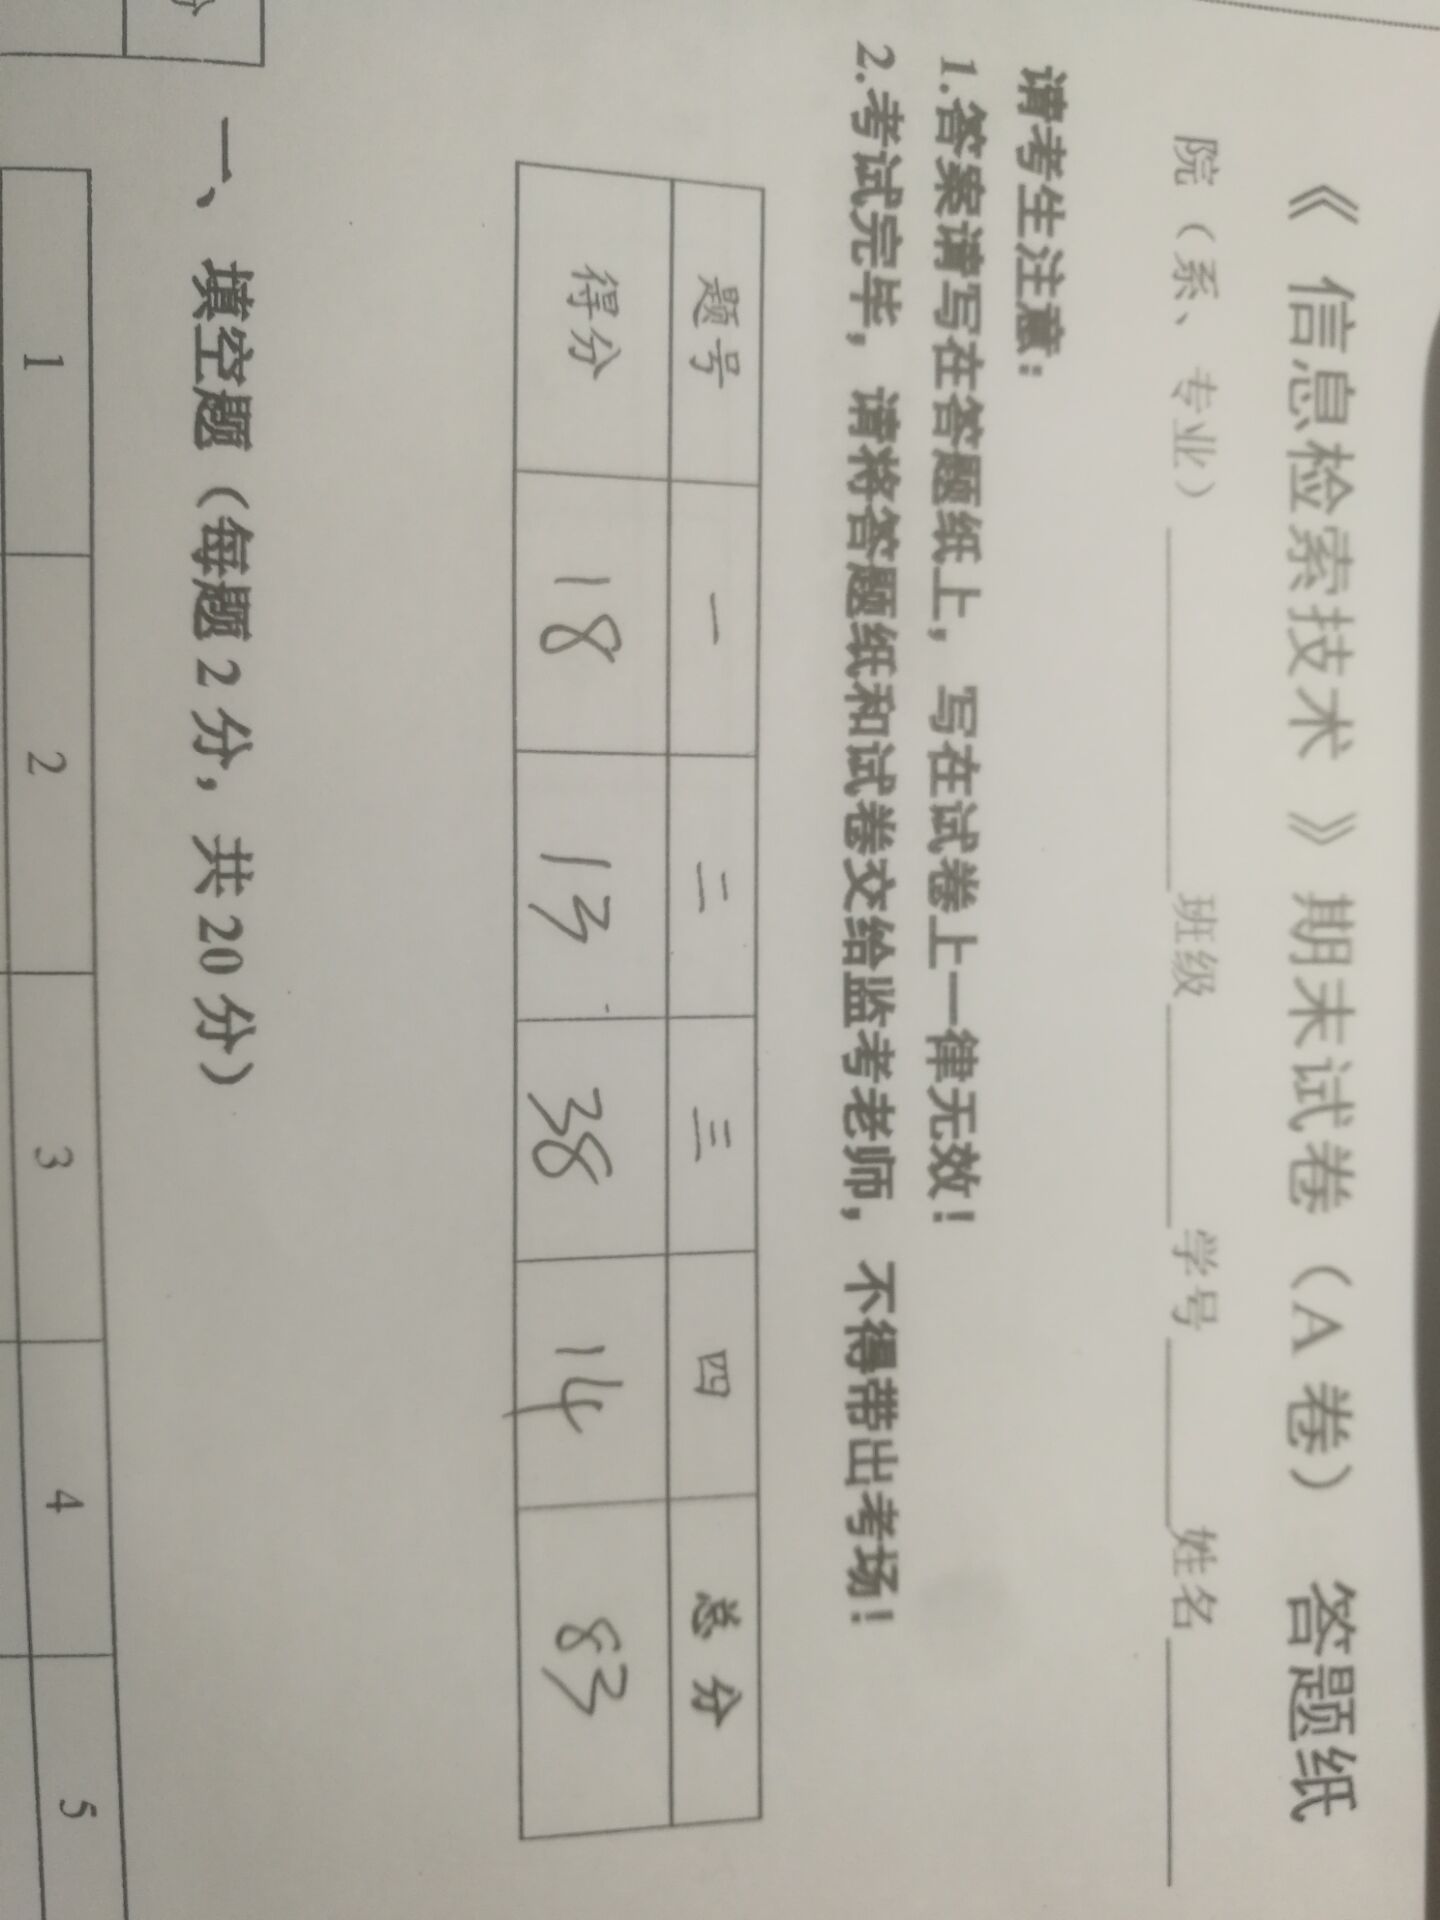 《 信息检索技术 》期末试卷（A 卷） 答题纸
院（系、专业）______________班级_________学号________姓名__________
请考生注意：
1.答案请写在答题纸上，写在试卷上一律无效！
2.考试完毕，请将答题纸和试卷交给监考老师，不得带出考场！
题号 一 二 三 四 总 分
得分 18 13 38 14 83
一、 填空题（每题 2 分，共 20 分）
1 2 3 4 5